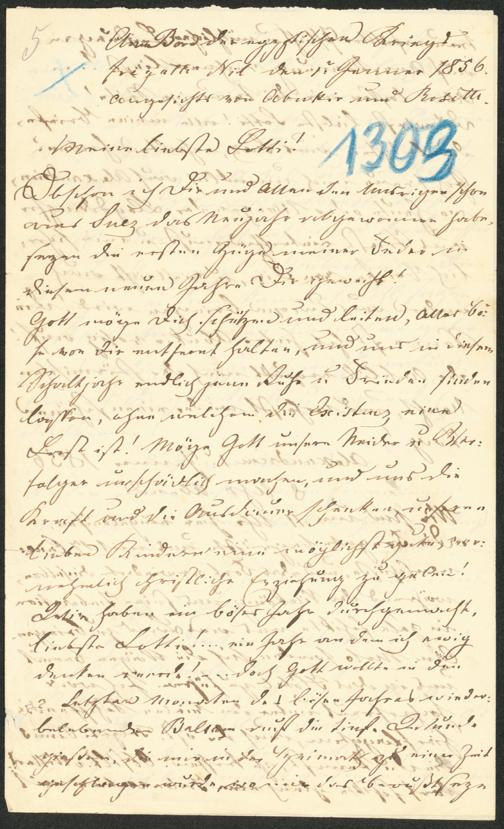 5
Am Bord der egyptischen Kriegs
fregatte Nil den 1t Jenner 1856.
Angesichts von Abukir und Rosette.
1303
Meine liebste Lotti!
Obschon ich Dir und Allen den Unsrigen schon
aus Suez das Neujahr abgewonnen habe,
seyen die ersten Züge meiner Feder in
diesem neuen Jahre Dir geweiht!
Gott möge Dich schützen und leiten, alles Bö-
se von Dir entfernt halten, und uns in diesem
Schaltjahr endlich jene Ruhe u Frieden finden
lassen, ohne welchem die Existenz eine
Last ist! Möge Gott unsere Neider u Ver-
folger unschädlich machen, und uns die
Kraft und die Ausdauer schenken unseren
lieben Kindern eine möglichst
christliche Erziehung zu geben!
Wir haben ein böses Jahr durchgemacht,
liebste Lotti! ein Jahr an dem ich ewig
denken werde! doch Gott wollte in den
letzten Monaten des bösen Jahres wieder
belebenden Balsam auf die tiefe Wunde
gießen, die mir in der Heimath zu einer Zeit
geschlagen wurde, wo das Bewußtseyn